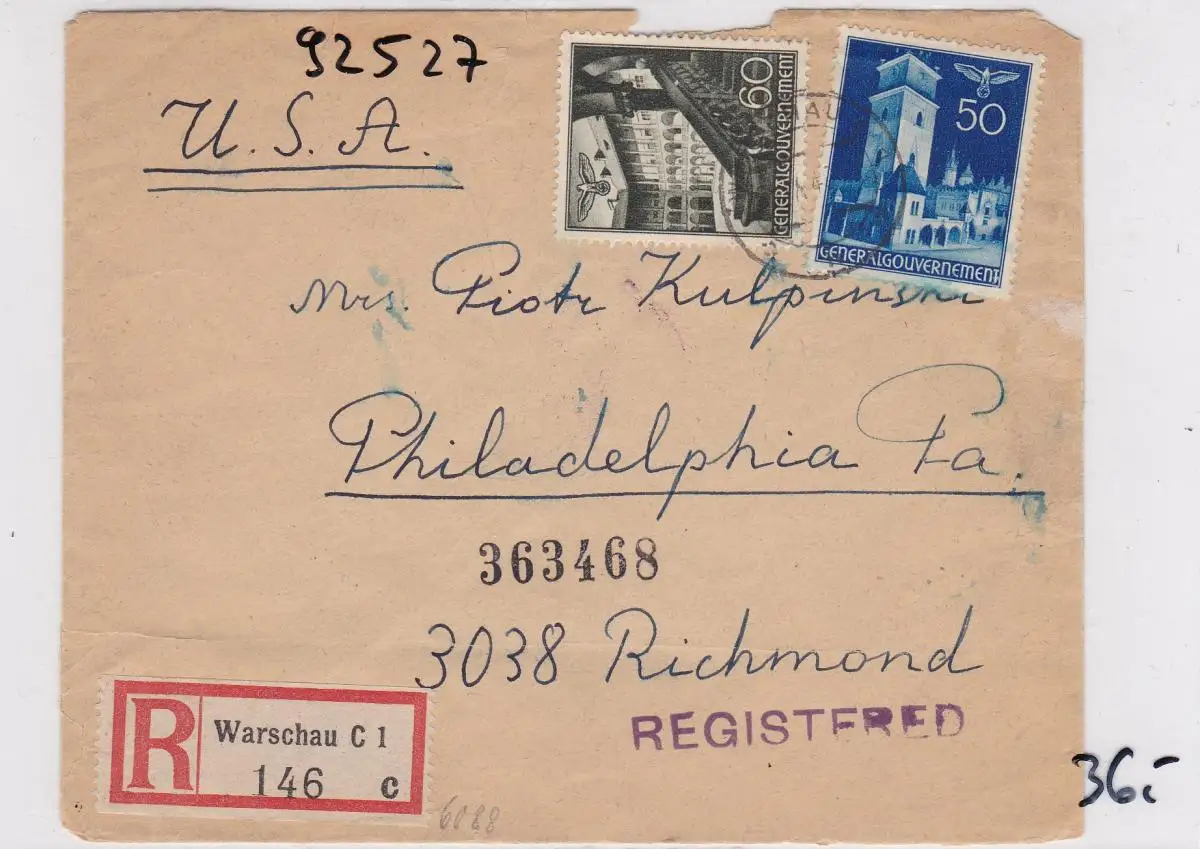 92527
U.S.A.
60
GENERALGOUVERNEMENT
50
GENERALGOUVERNEMENT
Mrs. Piotr Kulpinski
Philadelphia Pa.
363468
3038 Richmond
REGISTERED
R
Warschau C 1
146 c
6088
36.-